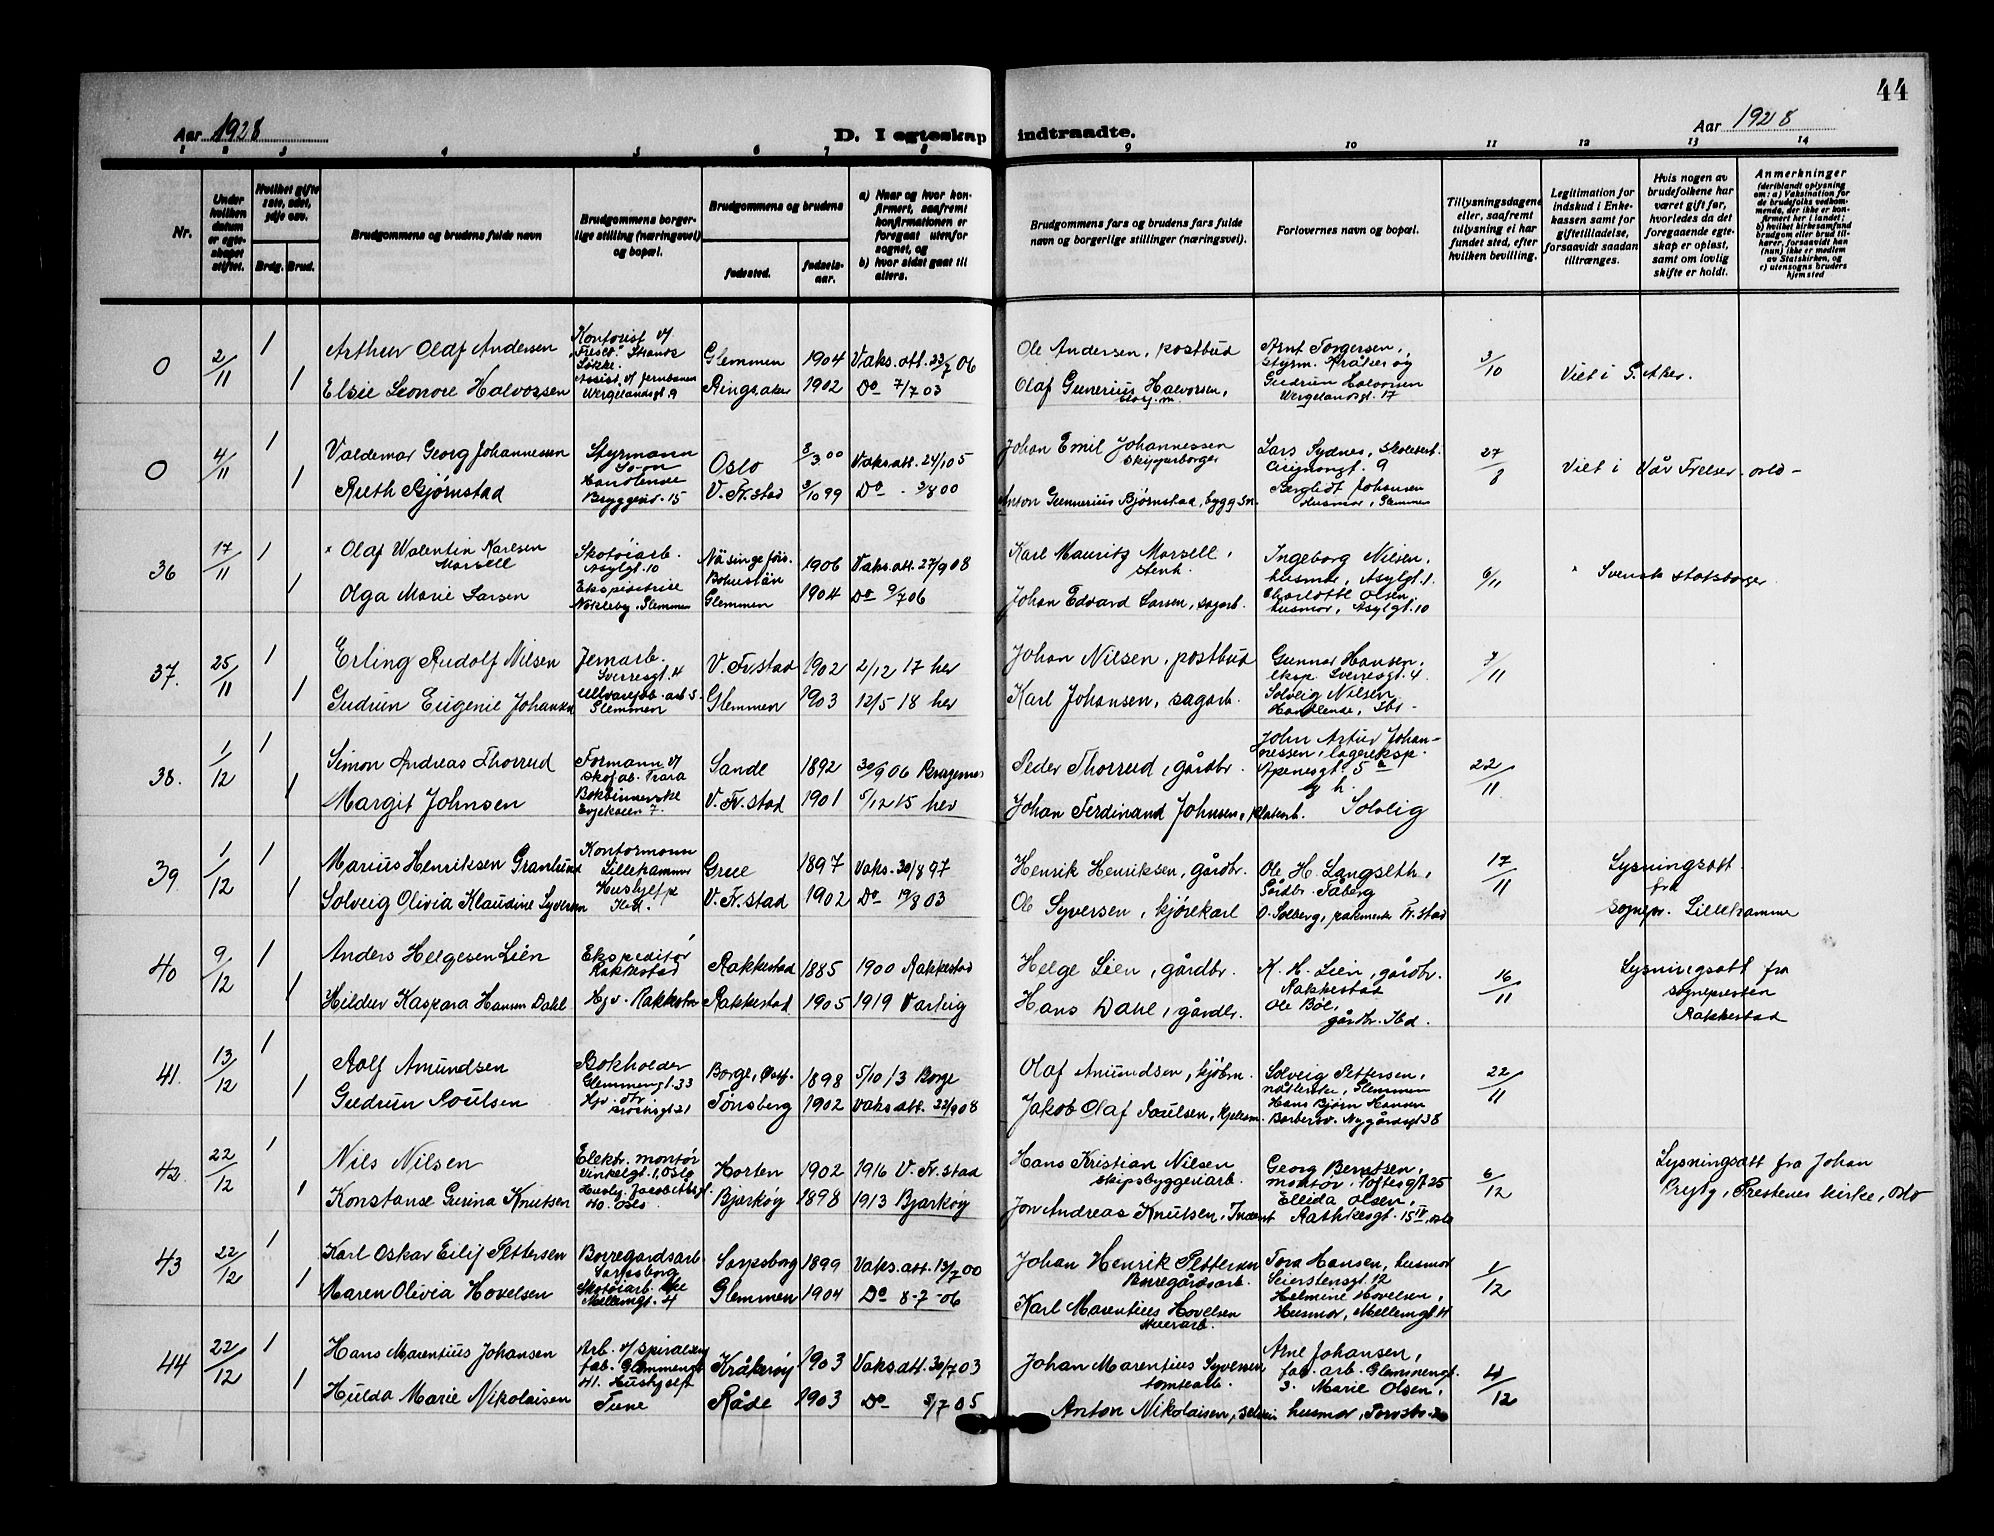 44
Aar 1928
D. I egteskap indtraadte.
Aar 1928
1 2 3 4 5 6 7 8 9 10 11 12 13 14
Nr.
Under hvilken datum er egteskapet stiftet.
Hvilket gifte 1ste, 2det, 3dje osv.
Brdg. Brud.
Brudgommens og brudens fulde navn
Brudgommens borgerlige stilling (næringsvei) og bopæl.
Brudgommens og brudens
fødested.
fødselsaar.
a) Naar og hvor konfirmert, saafremt konfirmationen er foregaat utenfor sognet, og
b) hvor sidst gaat til alters.
Brudgommens fars og brudens fars fulde navn og borgerlige stillinger (næringsvei).
Forlovernes navn og bopæl.
Tillysningsdagene eller, saafremt tillysning ei har fundet sted, efter hvilken bevilling.
Legitimation for indskud i Enkekassen samt for giftetilladelse, forsaavidt saadan tiltrænges.
Hvis nogen av brudefolkene har været gift før, hvorledes da det foregaaende egteskap er opløst, samt om lovlig skifte er holdt.
Anmerkninger
(deriblandt oplysning om: a) Vaksination for de brudefolks vedkommende, der ikke er konfirmert her i landet; b) hvilket kirkesamfund brudgom eller brud tilhører, forsaavidt han (hun) ikke er medlem av Statskirken, og c) utensogns bruders hjemsted
0 2/11 1 Arthur Olaf Andersen Kontorist v/ "Fresco" Strands Løkke. Glemmen 1904 Vaks.att. 23/7 06 Ole Andersen, postbud Arnt Torgersen, styrm. Kråkerøy 3/10 Viet i S. Aker.
1 Elsie Leonore Halvorsen Assist. v/ Jernbanen Wergelandsgt. 9 Ringsaker 1902 Do 7/7 03 Olaf Gunerius Halvorsen, Gudrun Halvorsen Wergelandsgt. 17
0 4/11 1 Valdemar Georg Johannessen Styrmann Oslo 8/3 00 Vaks.att. 24/10 5 Johan Emil Johannessen skipperborger Lars Sydnes, 27/8 Viet i Vår Frelser, oslo -
1 Ruth Bjørnstad Handlende Bryggeri. 15 V. Fr.stad 3/10 99 Do . 3/8 00 Anton Gunnerius Bjørnstad, byggsn. Bergliot Johansen Husmor, Glemmen
36 17/11 1 × Olaf Walentin Karlsen Morsell Skotøiarb. Asylgt. 10 Näsinge förs. Bohuslän 1906 Vaks.att. 27/9 08 Karl Mauritz Morsell, stenh. Ingeborg Nilsen, husmor, Asylgt. 1. 6/11 × Svensk statsborger
1 Olga Marie Larsen Ekspeditrise Nokleby, Glemmen Glemmen 1904 Do 9/7 06 Johan Edvard Larsen, sagarb. Charlotte Olsen, husmor, Asylgt. 10
37. 25/11 1 Erling Rudolf Nilsen Jernarb. Sverresgt. 4 V. Fr.stad 1902 2/12 17 her Johan Nilsen, postbud Gunnar Hansen, eksp. Sverresgt. 4. 7/11
1 Gudrun Eugenie Johansen Glemmen Glemmen 1903 12/5 18 her Karl Johansen, sagarb. Solveig Nilsen Handlende, Ibs -
38. 1/12 1 Simon Andreas Thorrud Formann v/ skofab. Trara Sande 1892 30/9 06 Bragernes Peder Thorrud, gårdbr. John Artur Johannessen, lagereksp. Apenesgt. 5a 22/11
1 Margit Johnsen Bokbinnerske Evjekveien 7. V. Fr.stad 1901 5/12 15 her Johan Ferdinand Johnsen, Solvlig
39 1/12 1 Marius Henriksen Granlund Kontormann Lillehammer Grue 1897 Vaks. 30/8 97 Henrik Henriksen, gårdbr. Ole H. Langseth, Gårdbr. Fåberg 17/11 Lysningsatt. fra sognepr. Lillehamme
1 Solveig Olivia Klaudine Syversen Hushjelp V. Fr.stad 1902 Do 19/8 03 Ole Syversen, kjørekarl O. Solberg, Fr.stad
40 9/12 1 Anders Helgesen Lien Ekspeditør Rakkestad Rakkestad 1885 1900 Rakkestad Helge Lien, gårdbr. K. H. Lien, gårdbr. Rakkestad 16/11 Lysningsatt fra sognepresten Rakkestad
1 Hildur Kaspara Hansen Dahl Hjv. Rakkestad Rakkestad 1905 1919 Varteig Hans Dahl, gårdbr. Ole Bøl, gårdbr. Ibd.
41. 13/12 1 Rolf Amundsen Bokholder Glemmengt. 33 Borge, Østf. 1898 5/10 13 Borge Olaf Amundsen, kjøbm. Solveig Pettersen, Glemmen 22/11
1 Gudrun Poulsen Hjv. Tønsberg 1902 Vaks.att. 22/9 08 Jakob Olaf Paulsen, Hans Bjørn Hansen Barbersv. Nygårdsgt 38
42. 22/12 1 Nils Nilsen Elektr. montør Vinkelgt. 1, Oslo Horten 1902 1916 V. Fr.stad Hans Kristian Nilsen skipsbyggeriarb. Georg Berntsen, montør, Toftesgt 25 6/12 Lysningsatt fra Johan Prytz, Prestenes kirke, oslo
1 Konstanse Gurina Knutsen Oslo Bjarkøy 1898 1913 Bjarkøy Jon Andreas Knutsen, Ellida Olsen, Rathkesgt. 15 IV, oslo
43 22/12 1 Karl Oskar Eilif Pettersen Borregårdsarb. Sarpsborg Sarpsborg 1899 Vaks.att. 13/7 00 Johan Henrik Pettersen Borregårdsarb. Tora Hansen, husmor Seierstensgt. 12 1/12
1 Maren Olivia Hovelsen Skotøiarb.ske Mellemgt. 4 Glemmen 1904 Do 8-7-06 Karl Marentius Hovelsen Helmine Hovelsen, Husmor, Mellemgt. 4
44 22/12 1 Hans Marentius Johansen Arb. v/ spiralseng fab. Glemmengt 41. Kråkerøy 1903 Vaks.att. 30/7 03 Johan Marentius Syversen tomtearb. Arne Johansen, fab. arb. Glemmengt. 3. 4/12
1 Hulda Marie Nikolaisen Hushjelp Tune Råde 1903 Do 3/7 05 Anton Nikolaisen, Marie Olsen, husmor,